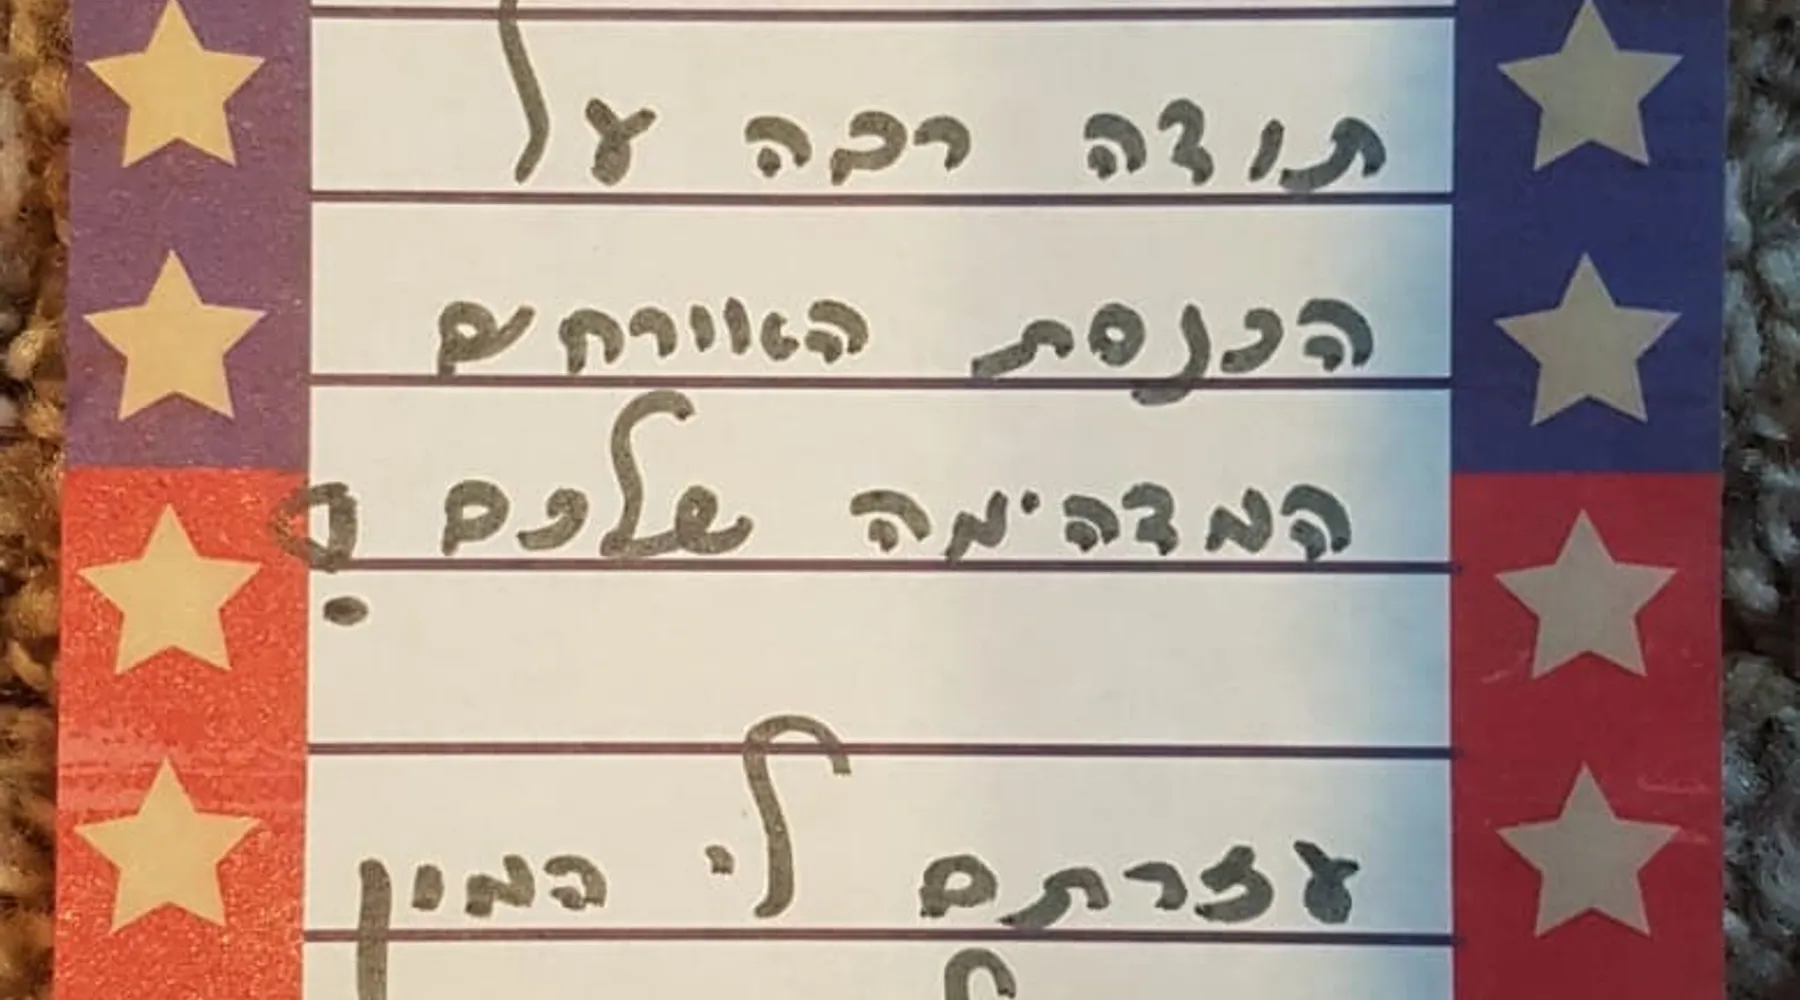 תודה רבה על
הכנסת האוורחים
המדהימה שלכם
עזרתם לי המון